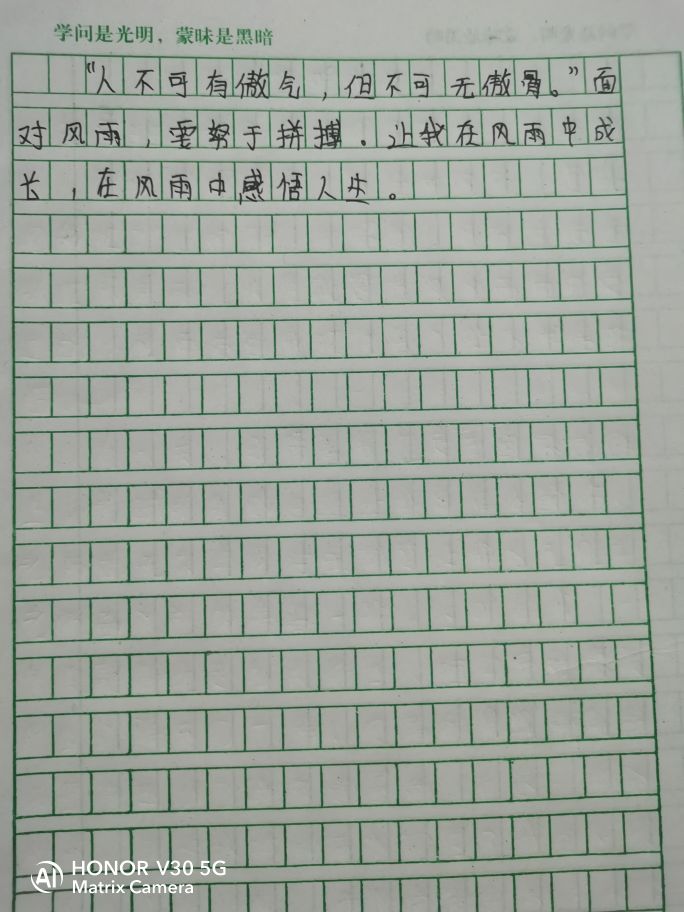 学问是光明，蒙昧是黑暗
“人不可有傲气，但不可无傲骨。”面
对风雨，要努于拼搏．让我在风雨中成
长，在风雨中感悟人生。
HONOR V30 5G
Matrix Camera